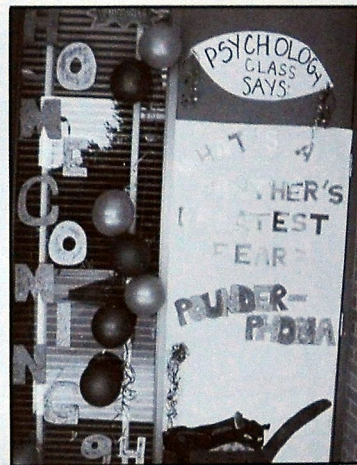 HOMECOMING
94
PSYCHOLOGY
CLASS
SAYS:
WHAT'S A
GREATEST
FEAR?
POUNDER-
PHOBIA